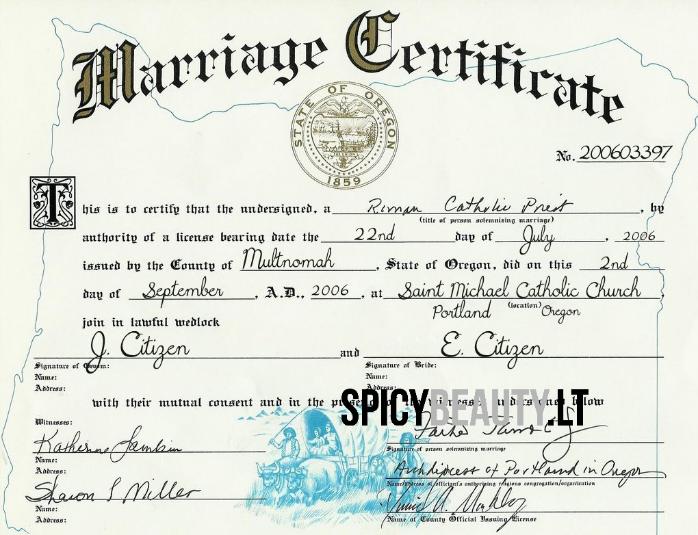 Marriage Certificate
STATE OF OREGON
1859
No. 200603397
This is to certify that the undersigned, a Roman Catholic Priest, by
(title of person solemnizing marriage)
authority of a license bearing date the 22nd day of July, 2006
issued by the County of Multnomah, State of Oregon, did on this 2nd
day of September, A.D., 2006, at Saint Michael Catholic Church
(location)
Portland Oregon
join in lawful wedlock
J. Citizen and E. Citizen
Signature of Groom: Signature of Bride:
Name: Name:
Address: Address:
with their mutual consent and in the presence of the witnesses undersigned below
SPICYBEAUTY.LT
Witnesses:
Father
Signature of person solemnizing marriage
Katherine
Name:
Address:
Archdiocese of Portland in Oregon
Name/Address of official's authorizing religious congregation/organization
Sharon S Miller
Name:
Address:
Name of County Official Issuing License